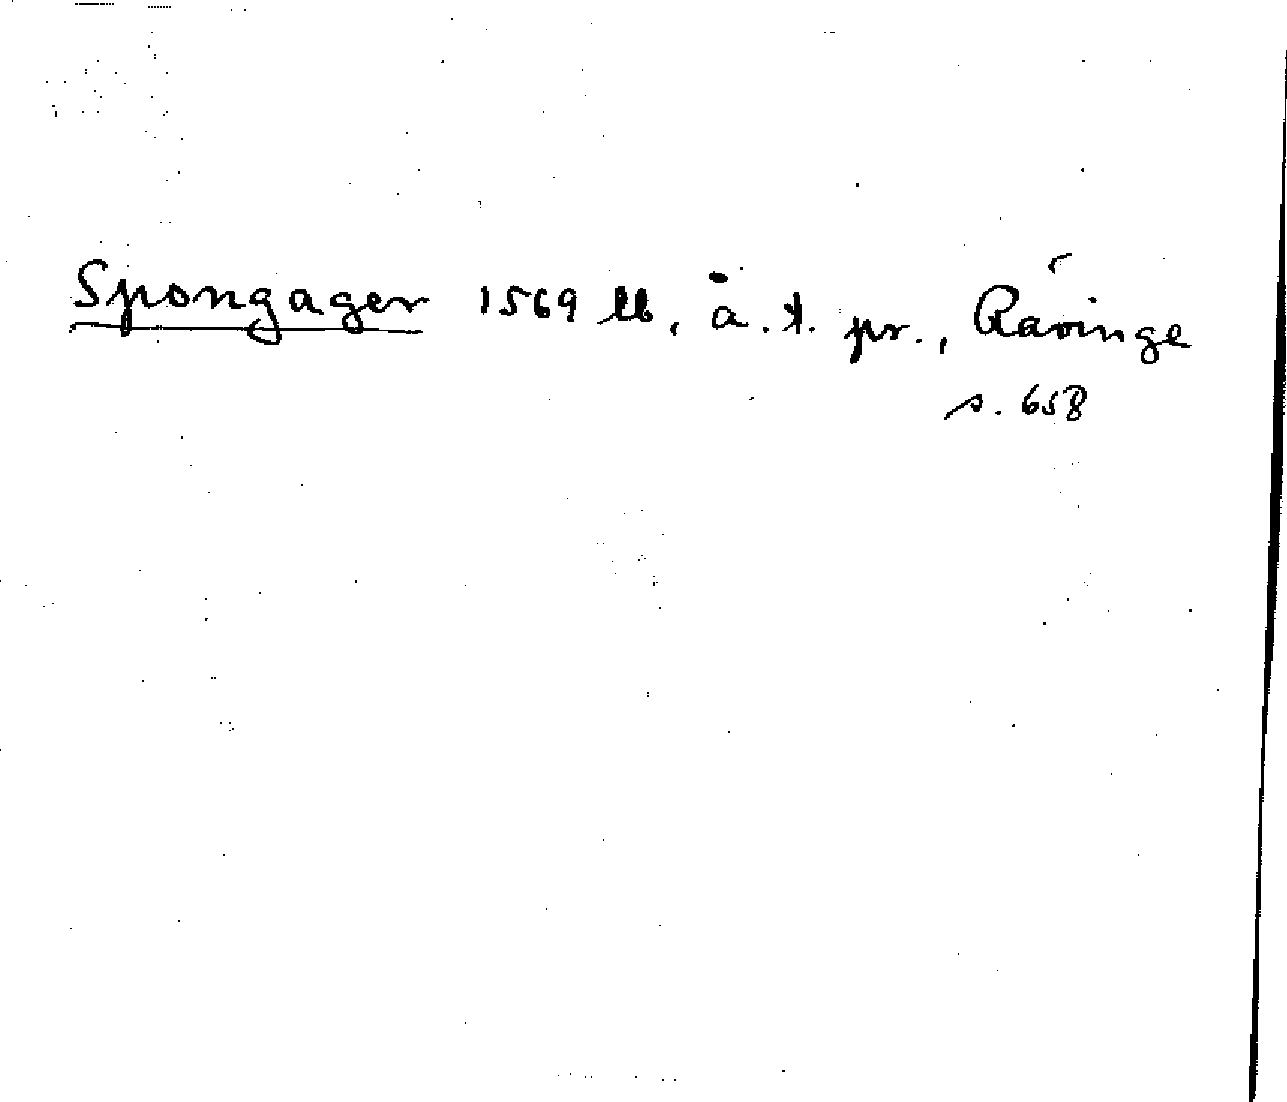 Spongager 1569 lb, å. t. pr., Råvinge
s. 658